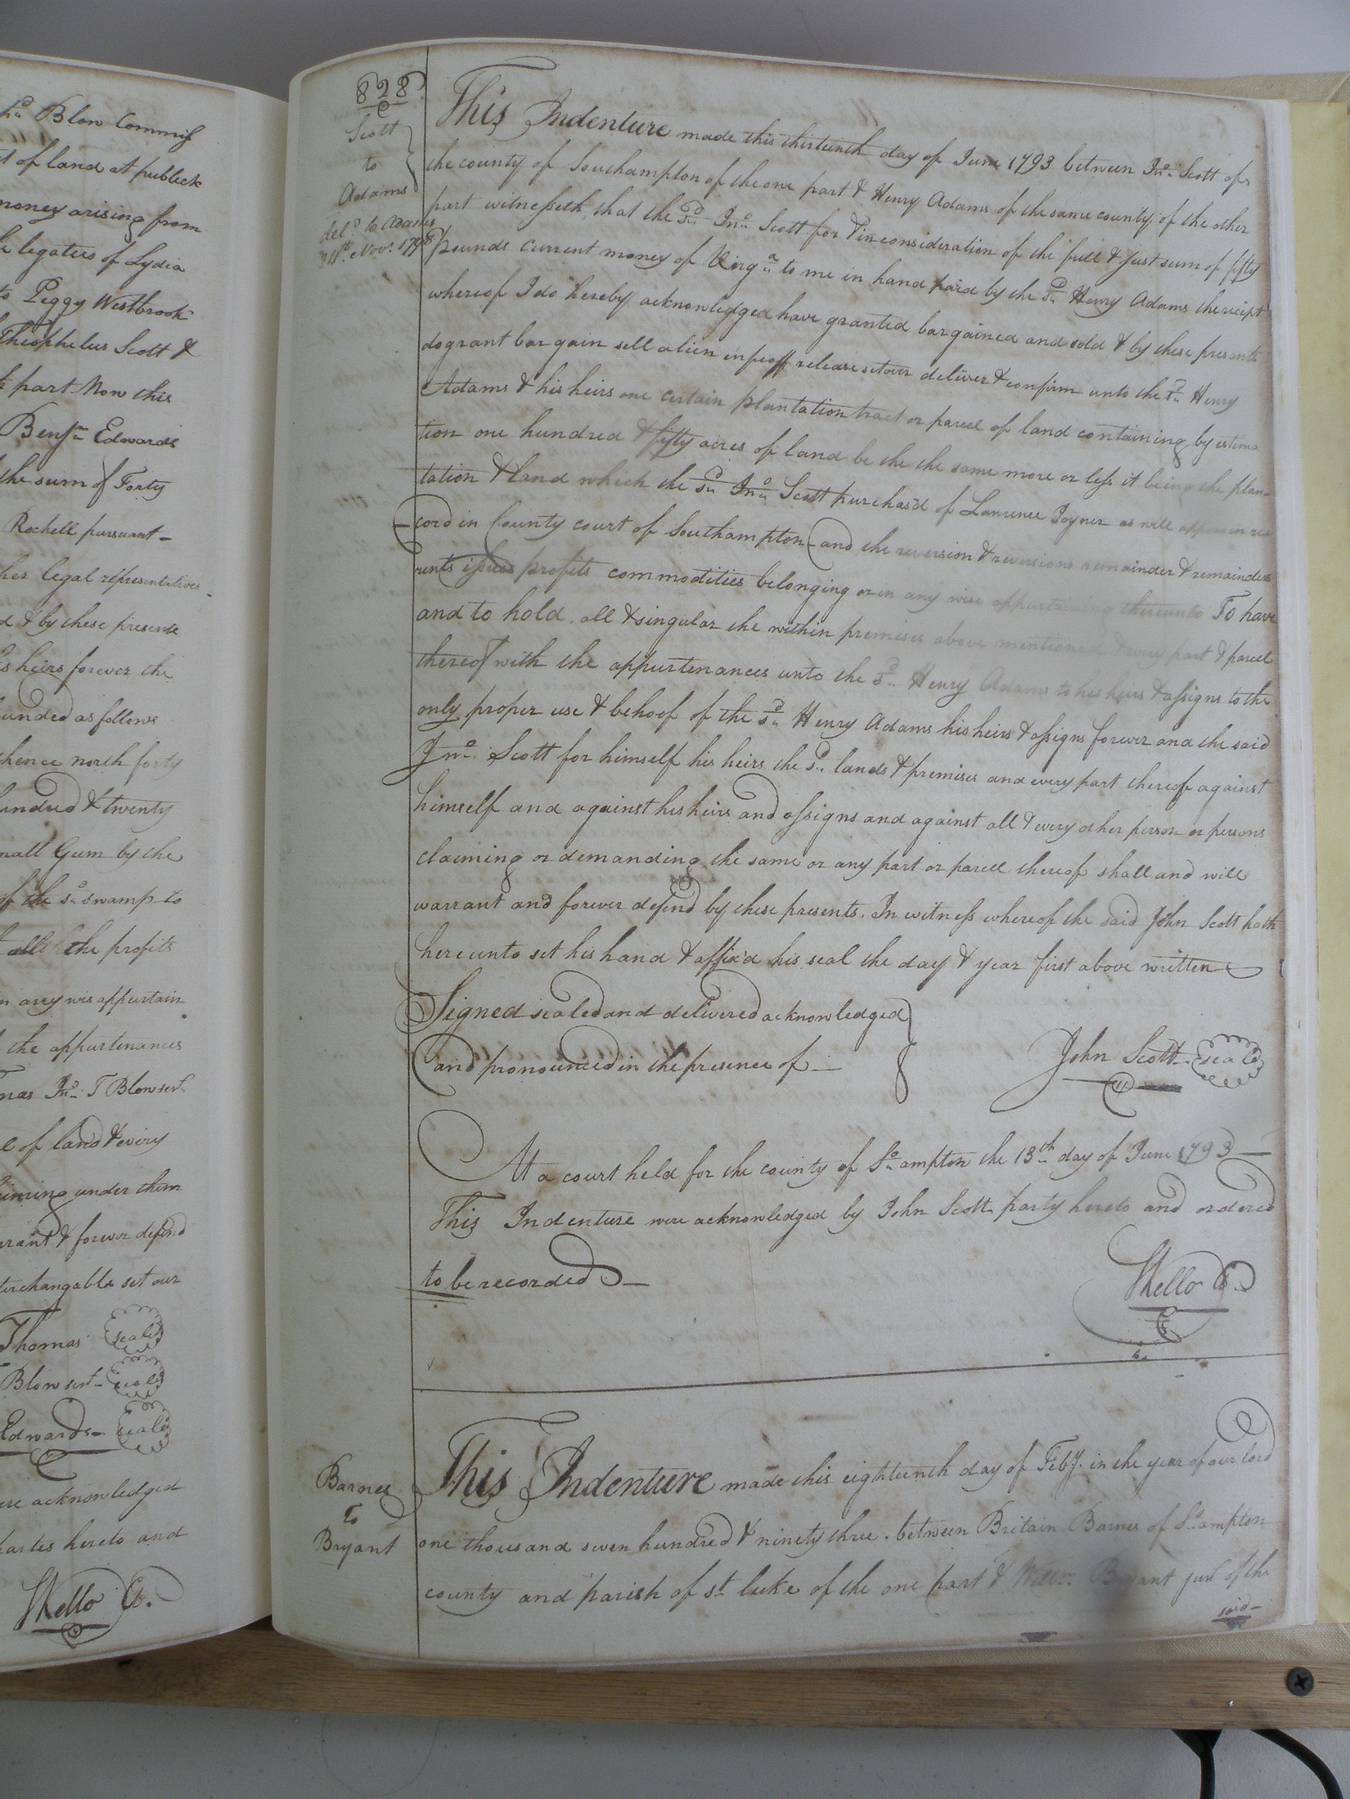 hn. Blow Commis
t of land at publick
money arising from
he legatees of Lydia
to Peggy Westbrook
Theophelus Scott &
part Now this
Benjn Edwards
the sum of Forty
Rochell pursuant –
her legal representatives
d & by these presents
s heirs forever the
unded as follows
thence north forty
hundred & twenty
mall Gum by the
of the sd swamp to
all the profits
n any wis appurtain
the appurtenances
mas Jno. T Blow senr.
l of land & every
claiming under them
rrant & forever defend
terchangable set our
Thomas seal
Blow senr – seal
Edwards – seal
ere acknowledged
parties hereto and
SKello Cc.
828
Scott
to
Adams
deld. to Adams
Novr. 1798
This Indenture made this thirteenth day of June 1793 between Jno. Scott of
the county of Southampton of the one part & Henry Adams of the same county of the other
part witnesseth that the sd. Jno. Scott for & in consideration of the full & just sum of fifty
pounds current money of Virga. to me in hand paid by the sd. Henry Adams the receipt
whereof I do hereby acknowledged have granted bargained and sold & by these presents
do grant bargain sell alien infeoff release setover deliver & confirm unto the sd. Henry
Adams & his heirs one certain plantation tract or parcel of land containing by estima
tion one hundred & fifty acres of land be the the same more or less it being the plan-
tation & land which the sd. Jno. Scott purchas'd of Lawrence Joyner as will appear in re
cord in County court of Southampton and the reversion & reversions remainder & remainders
rents issues profits commodities belonging or in any wise appurtaining thereunto To have
and to hold all & singular the within premises above mentioned & every part & parcel
thereof with the appurtenances unto the sd. Henry Adams to his heirs & assigns to the
only proper use & behoof of the sd. Henry Adams his heirs & assigns forever and the said
Jno. Scott for himself his heirs the sd. lands & premises and every part thereof against
himself and against his heirs and assigns and against all & every other person or persons
claiming or demanding the same or any part or parcel thereof shall and will
warrant and forever defend by these presents. In witness whereof the said John Scott hath
hereunto set his hand & affix'd his seal the day & year first above written
Signed sealed and delivered acknowledged
and pronounced in the presence of –
John Scott – seal
At a court held for the county of So.ampton the 13th day of June 1793 –
This Indenture were acknowledged by John Scott party hereto and ordered
to be recorded –
SKello Cc.
Barnes
to
Bryant
This Indenture made this eighteenth day of Feby. in the year of our lord
one thousand seven hundred & ninety three. between Britain Barnes of So.ampton
county and parish of st. luke of the one part & Willm. Bryant junr of the
said –